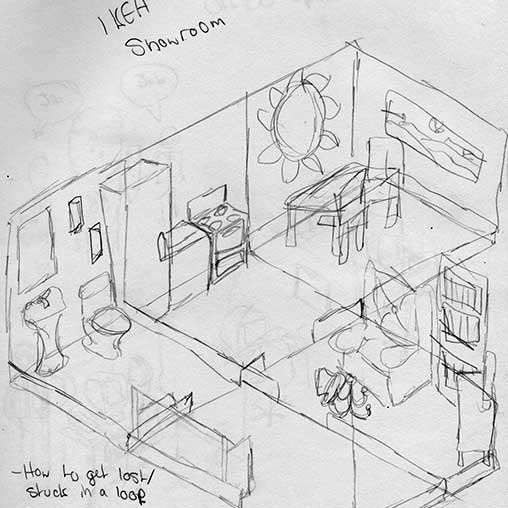 IKEA
Showroom
-How to get lost/
stuck in a loop